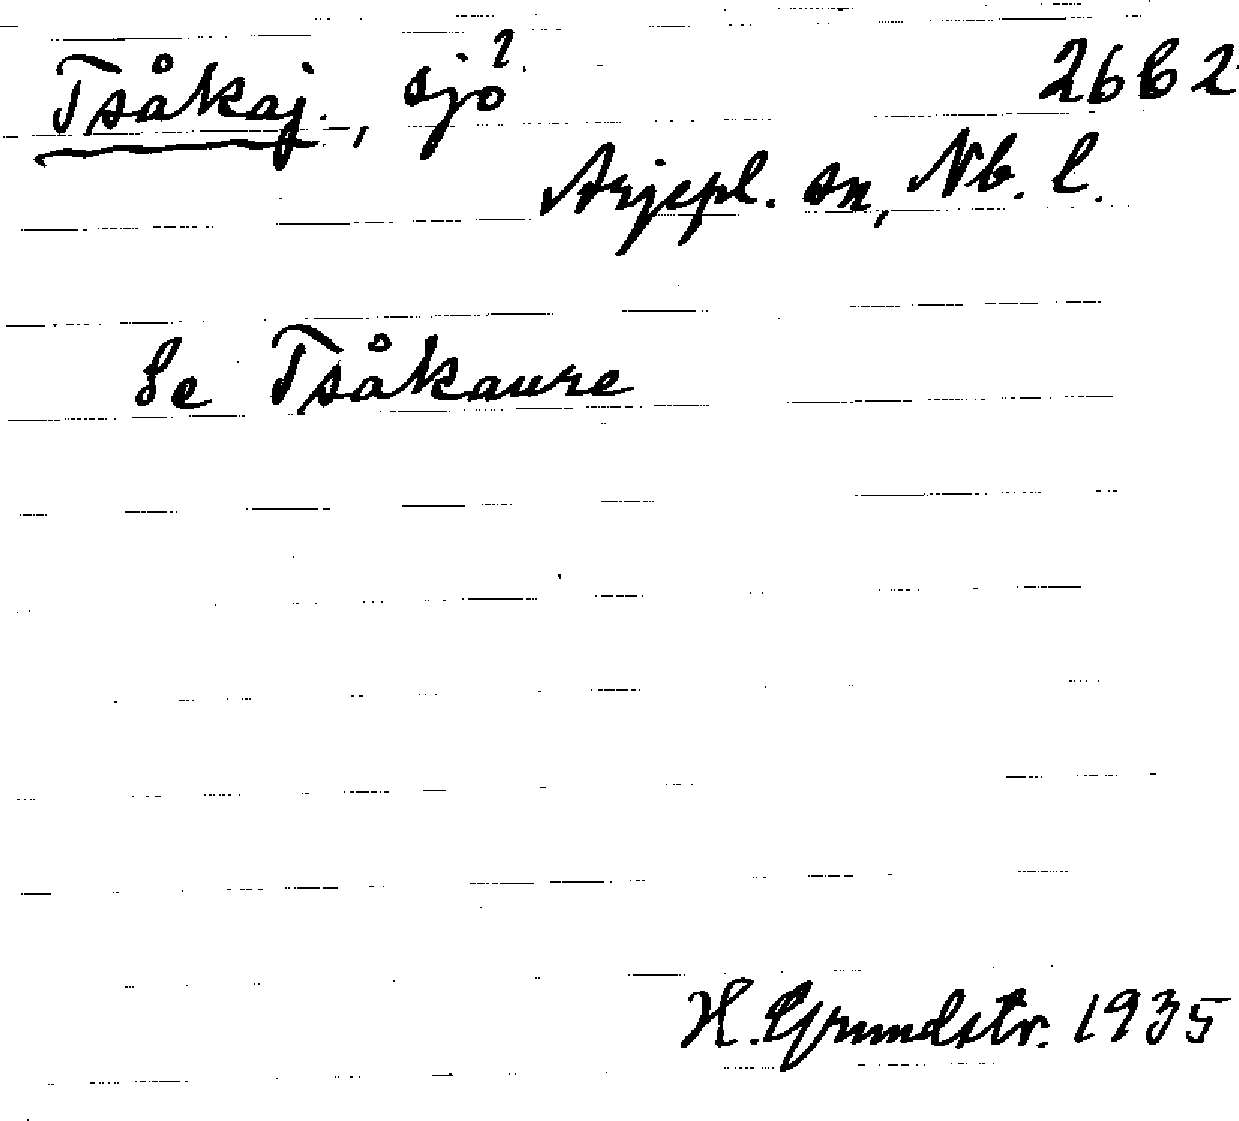 Tsåkaj-, sjö? 26 B 2
Arjepl. sn, Nb. l.
Se Tsåkaure
H. Grundstr. 1935